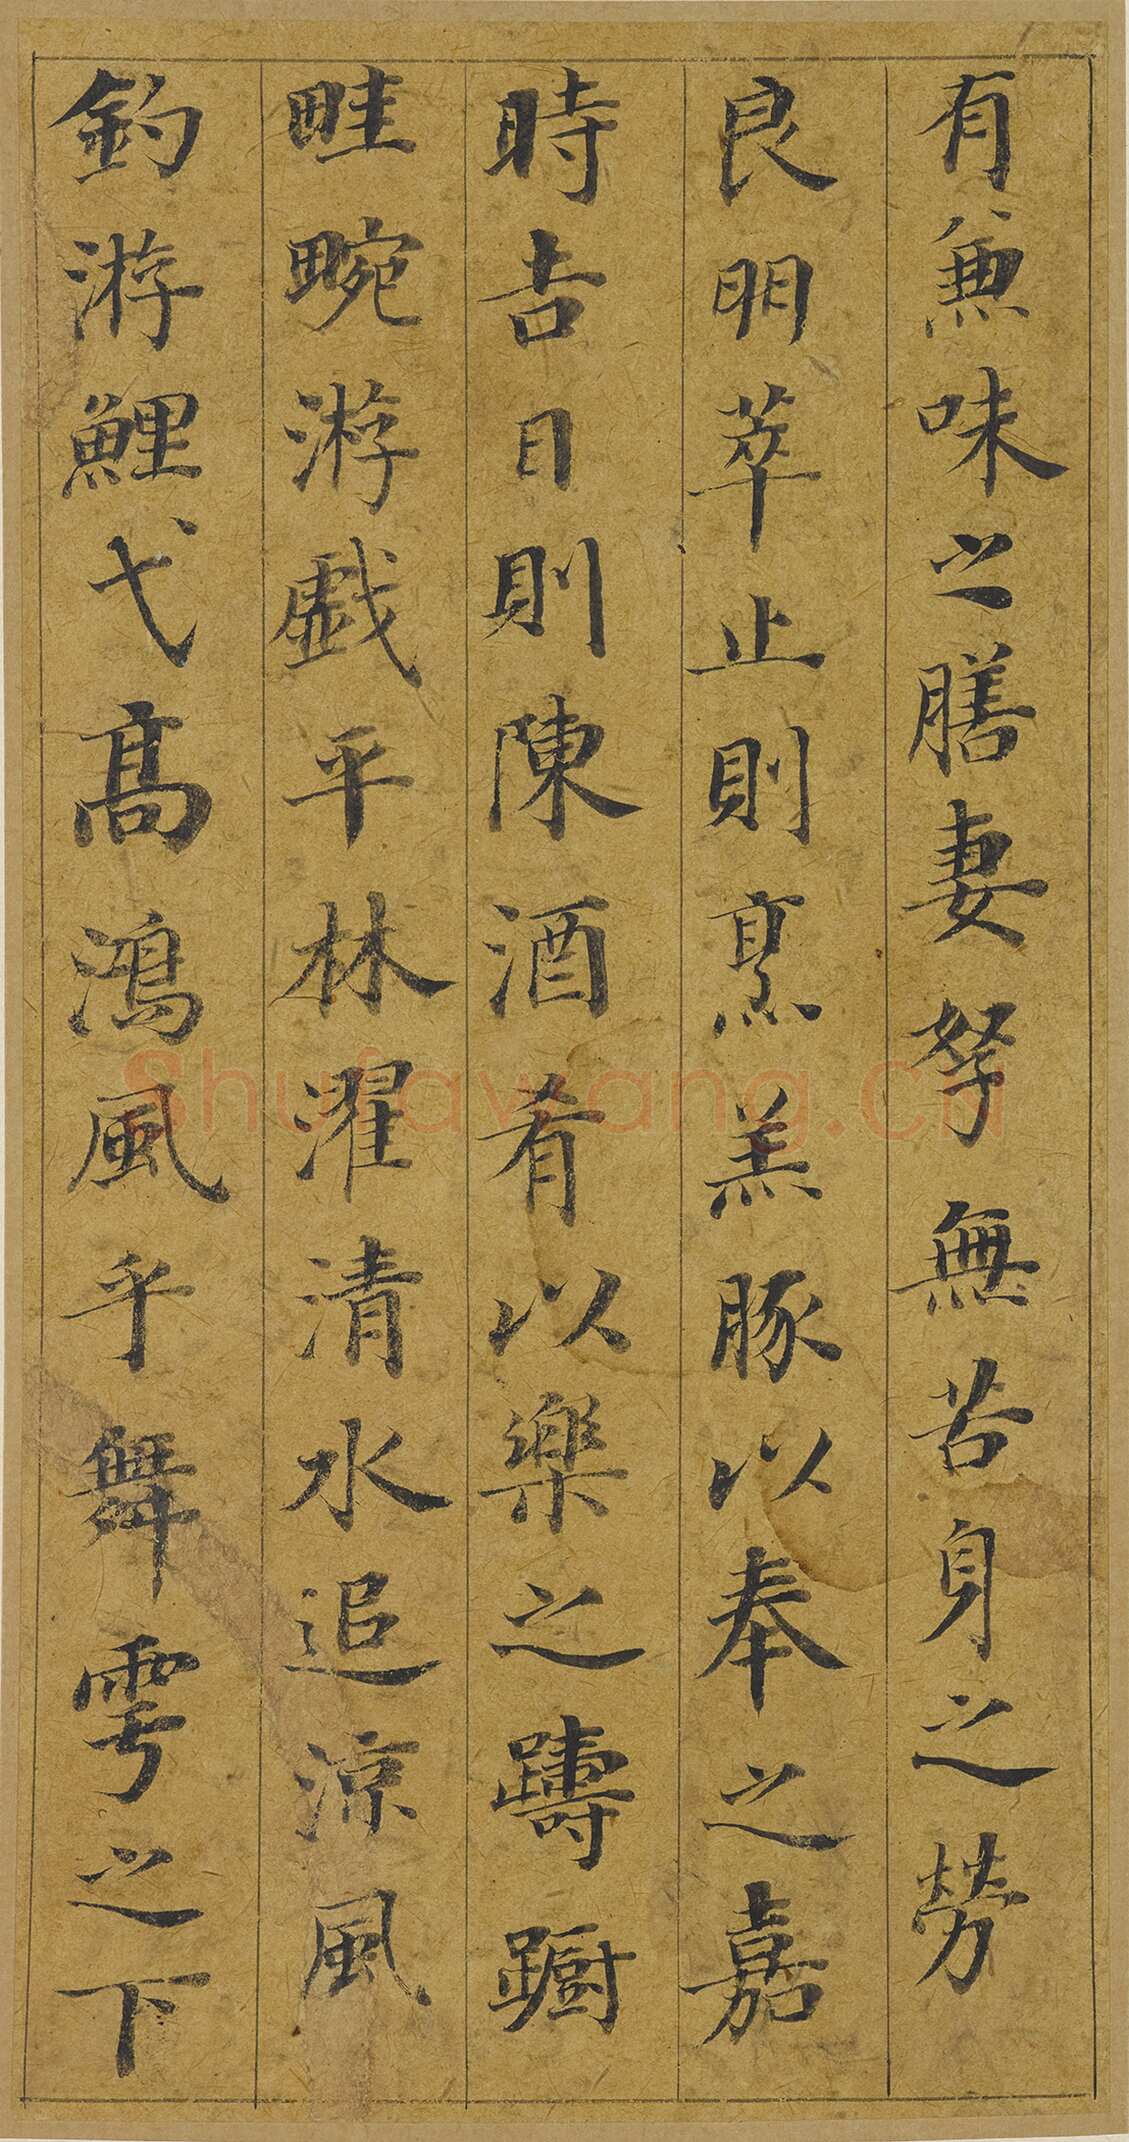 有兼味之膳妻孥無苦身之勞
良朋萃止則烹羔豚以奉之嘉
時吉日則陳酒肴以樂之躊躕
畦畹游戯平林濯清水追涼風
釣游鯉弋髙鴻風乎舞雩之下
Shufawang.cn